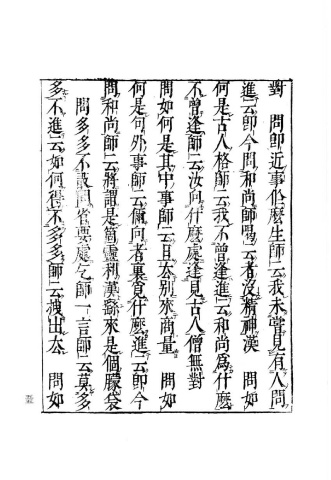 對　問即近事作麼生師云我未甞見有人問
進云即今問和尚師喝云者沒精神漢　問如
何是古人格師云我不曾逢進云和尚爲什麼
不曾逢師云汝向什麼處逢見古人僧無對
問如何是其中事師云且去別來商量　問如
何是句外事師云儞向者裏覓什麼進云即今
問和尚師云將謂是箇靈利漢來是個朦袋
問多多不敢問省要處乞師一言師云莫多
多不進云如何得不多多師云拽出去　問如